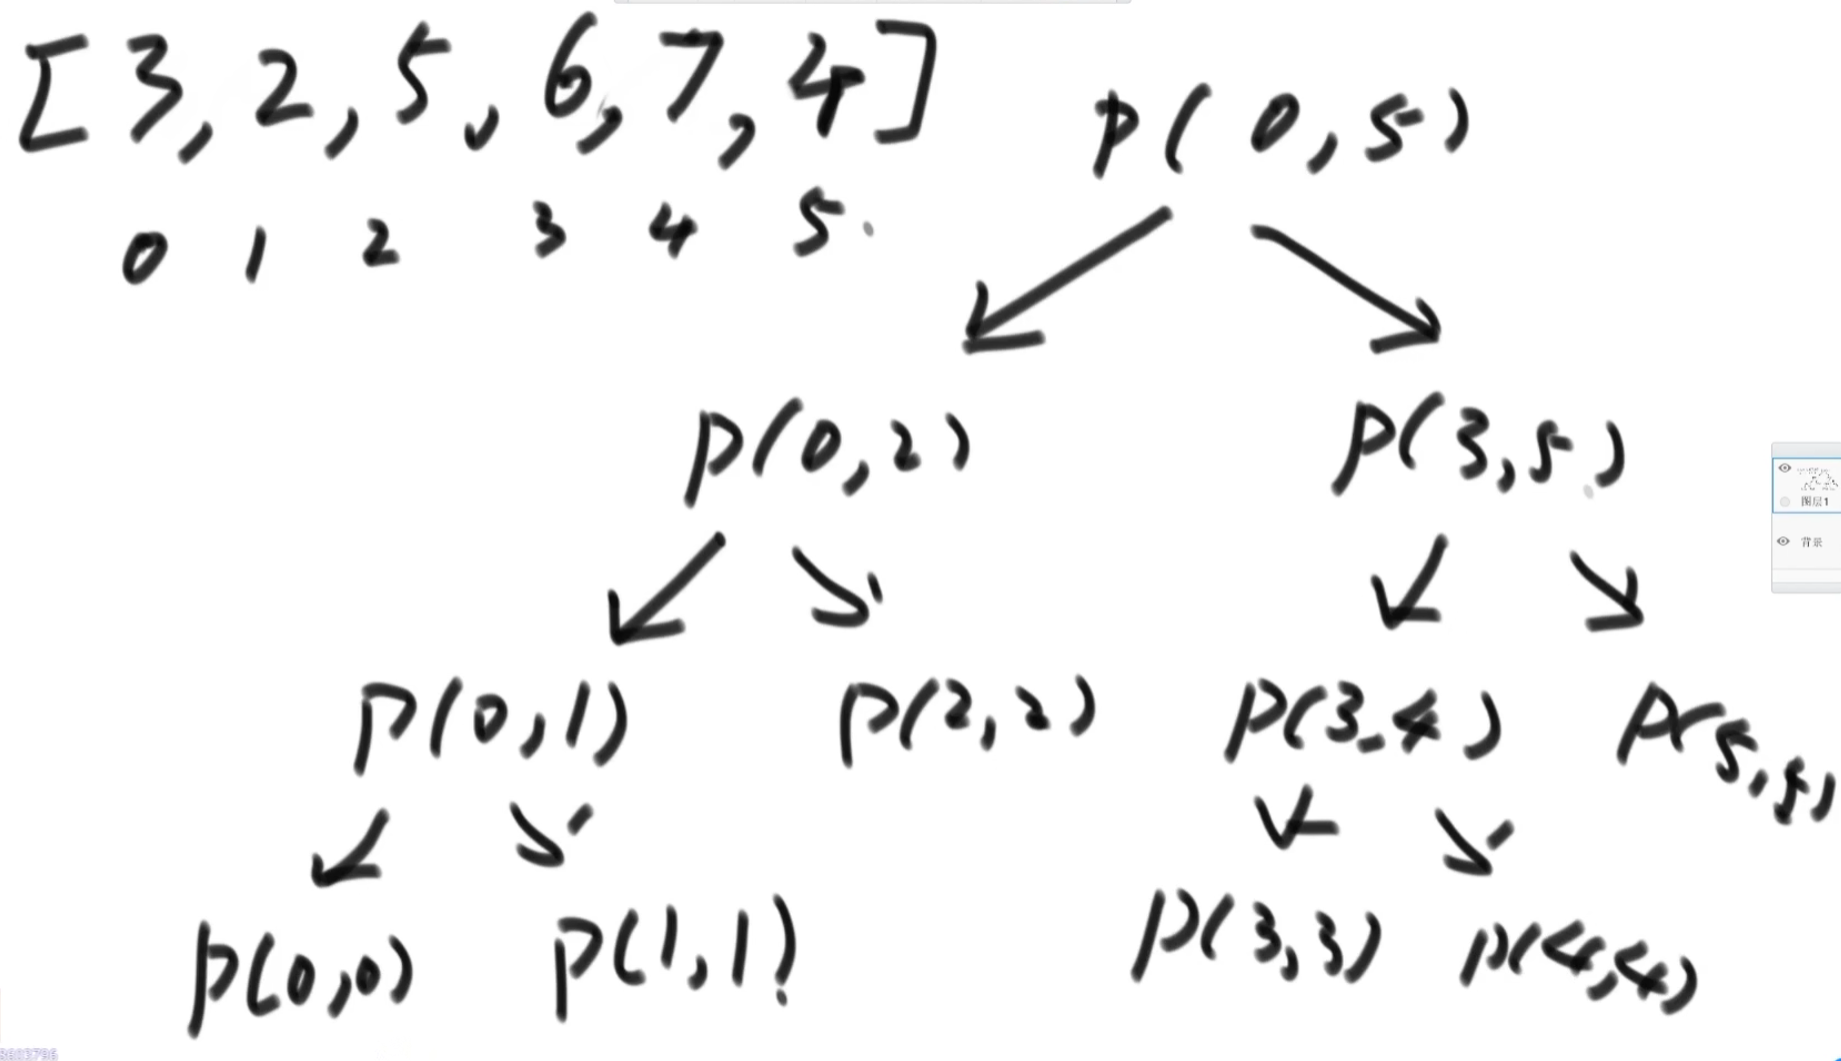 [3, 2, 5, 6, 7, 4]
0 1 2 3 4 5
p(0,5)
p(0,2) p(3,5)
图层1
背景
p(0,1) p(2,2) p(3,4) p(5,5)
p(0,0) p(1,1) p(3,3) p(4,4)